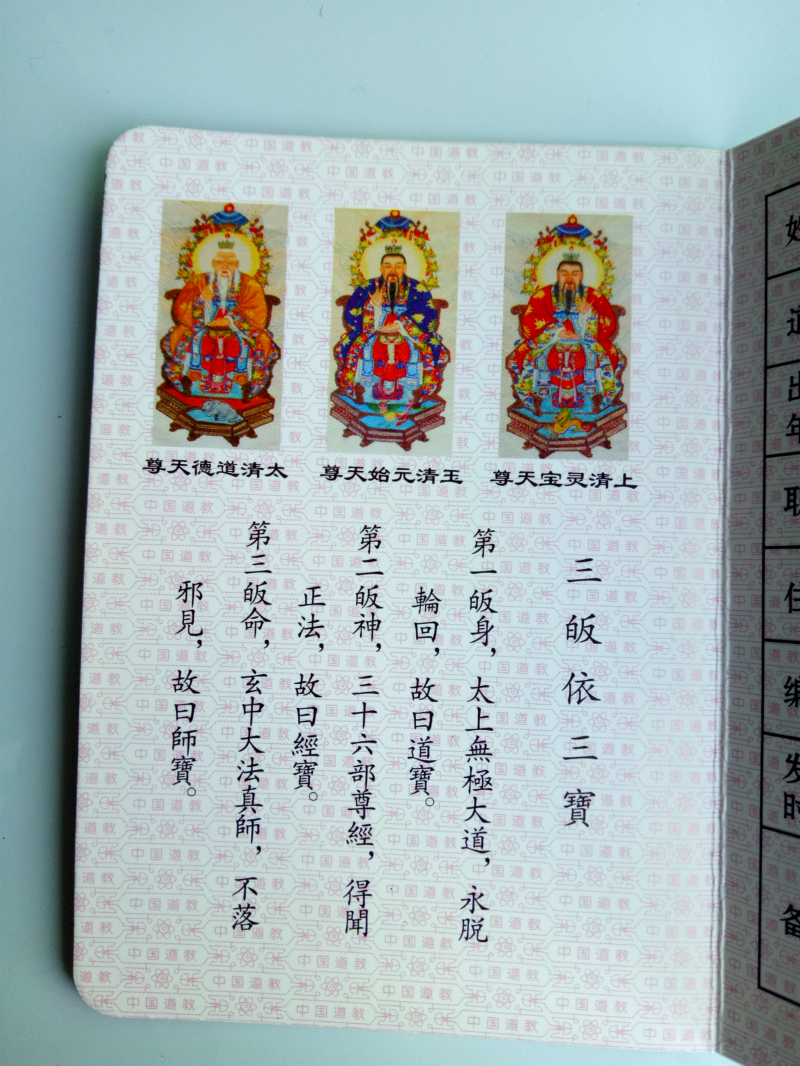 上清灵宝天尊
玉清元始天尊
太清道德天尊
三皈依三寶
第一皈身，太上無極大道，永脱
輪回，故曰道寶。
第二皈神，三十六部尊經，得聞
正法，故曰經寶。
第三皈命，玄中大法真師，不落
邪見，故曰師寶。
中国道教